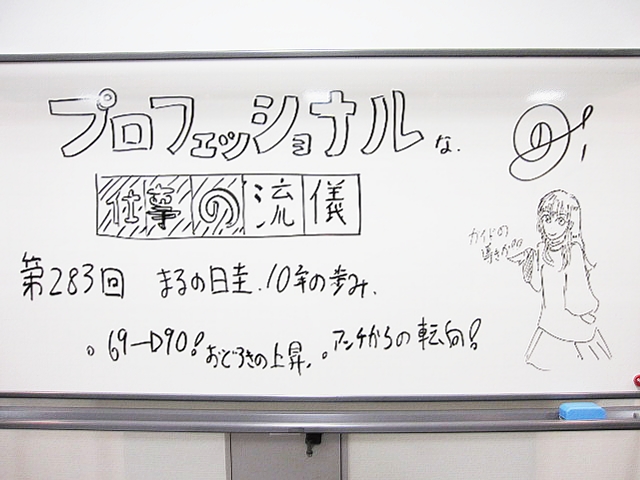 プロフェッショナル な.
仕事の流儀
第283回 まるの日圭.10年の歩み.
。69→90!おどろきの上昇.。アンチからの転向!
の!
カイドの
導きが